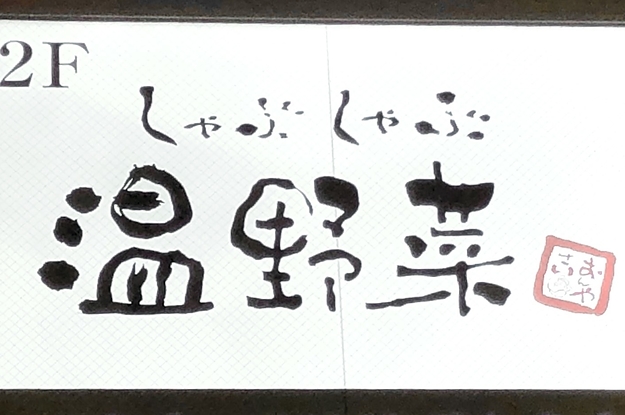 2F
しゃぶしゃぶ
温野菜
おんや
さい